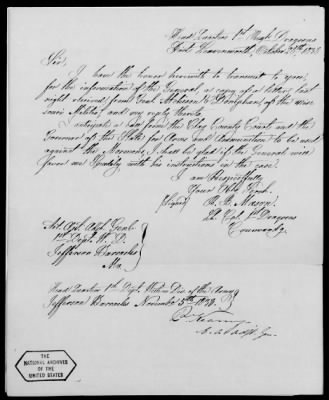 Head Quarters 1st Regt Dragoons
Fort Leavenworth, October 30th 1838
Sir,
I have the honor herewith to transmit to you
for the information of the General, a copy of a letter, last
night received from Genl Atchison & Doniphan of the Mis-
souri Militia, and my reply thereto.
I anticipate a call from the Clay County Court and the
Governor of this State, for Arms and Ammunition to be used
against the Mormons, I shall be glad if the General will
favor me speedily with his instructions in the case.
I am Respectfully
Your Obt Servt.
(Signed) R. B. Mason
Lt Col 1st Dragoons
Commandg.
Act. Asst. Adjt. Genl.
1st Dept. W. D.
Jefferson Barracks
Mo.
Head Quarters 1st Dept. Western Div. of the Army
Jefferson Barracks November 5th 1838.
THE
NATIONAL ARCHIVES
OF THE
UNITED STATES